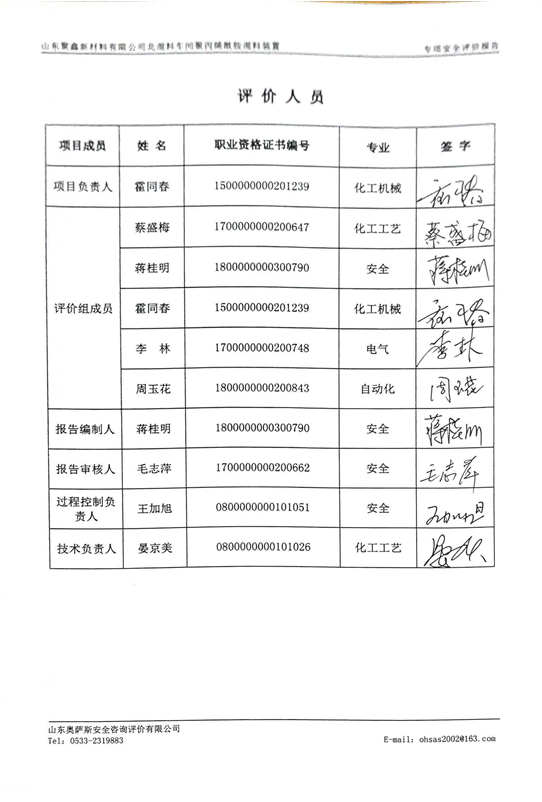 山东聚鑫新材料有限公司北混料车间聚丙烯酰胺混料装置 专项安全评价报告
评价人员
项目成员 姓名 职业资格证书编号 专业 签字
项目负责人 霍同春 1500000000201239 化工机械
评价组成员 蔡盛梅 1700000000200647 化工工艺 蔡盛梅
蒋桂明 1800000000300790 安全 蒋桂明
霍同春 1500000000201239 化工机械
李林 1700000000200748 电气 李林
周玉花 1800000000200843 自动化
报告编制人 蒋桂明 1800000000300790 安全 蒋桂明
报告审核人 毛志萍 1700000000200662 安全 毛志萍
过程控制负
责人 王加旭 0800000000101051 安全
技术负责人 晏京美 0800000000101026 化工工艺
山东奥萨斯安全咨询评价有限公司
Tel：0533-2319883 E-mail：ohsas2002@163.com